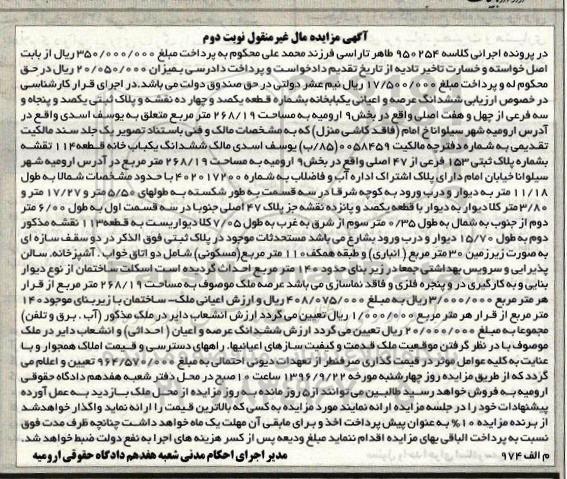 آگهی مزایده مال غیرمنقول نوبت دوم
در پرونده اجرائی کلاسه ۹۵۰۲۵۴ طاهر تاراسی فرزند محمد علی محکوم به پرداخت مبلغ ۳۵۰/۰۰۰/۰۰۰ ریال از بابت
اصل خواسته و خسارت تاخیر تادیه از تاریخ تقدیم دادخواست و پرداخت دادرسی بمیزان ۲۰/۰۵۰/۰۰۰ ریال در حق
محکوم له و پرداخت مبلغ ۱۷/۵۰۰/۰۰۰ ریال نیم عشر دولتی در حق صندوق دولت می باشد. در اجرای قرار کارشناسی
در خصوص ارزیابی ششدانگ عرصه و اعیانی یکبابخانه بشماره قطعه یکصد و چهارده نقشه و پلاک ثبتی یکصد و پنجاه و
سه فرعی از چهل و هفت اصلی واقع در بخش ۹ ارومیه به مساحت ۲۶۸/۱۹ متر مربع متعلق به یوسف اسدی واقع در
آدرس ارومیه شهر سیلوانا خ امام (فاقد کاشی منزل) که به مشخصات مالک و فنی باستناد تصویر یک جلد سند مالکیت
تقدیمی به شماره دفترچه مالکیت ۰۰۵۸۴۵۹(۸۵/ب) یوسف اسدی مالک ششدانگ یکباب خانه قطعه ۱۱۴ نقشه
بشماره پلاک ثبتی ۱۵۳ فرعی از ۴۷ اصلی واقع در بخش ۹ ارومیه به مساحت ۲۶۸/۱۹ متر مربع در آدرس ارومیه شهر
سیلوانا خیابان امام دارای پلاک اشتراک اداره آب و فاضلاب به شماره ۴۰۲۰۱۷۲۰۰ با حدود مشخصات شمالا به طول
۱۱/۱۸ متر به دیوار و درب ورود به کوچه شرقا در سه قسمت به طور شکسته به طولهای ۵/۵۰ متر و ۱۷/۲۷ متر و
۳/۸۰ متر کلا دیوار به دیوار با قطعه یکصد و پانزده نقشه جز پلاک ۴۷ اصلی جنوبا در سه قسمت اول به طول ۶/۰۰ متر
دوم از جنوب به شمال به طول ۰/۳۵ متر سوم از شرق به غرب به طول ۷/۰۵ کلا دیواریست به قطعه ۱۱۳ نقشه مذکور
دوم به طول ۱۵/۷۰ دیوار و درب ورود بشارع می باشد مستحدثات موجود در پلاک ثبتی فوق الذکر در دو سقف سازه ای
به صورت زیرزمین ۳۰ متر مربع (انباری) و طبقه همکف ۱۱۰ متر مربع (مسکونی) شامل دو اتاق خواب، آشپزخانه، سالن
پذیرایی و سرویس بهداشتی جمعا در زیر بنای حدود ۱۴۰ متر مربع احداث گردیده است اسکلت ساختمان از نوع دیوار
بنایی و به کارگیری در و پنجره فلزی و فاقد نماسازی می باشد عرصه ملک موصوف به مساحت ۲۶۸/۱۹ متر مربع از قرار
هر متر مربع ۳/۰۰۰/۰۰۰ ریال به مبلغ ۴۰۸/۰۷۵/۰۰۰ ریال و ارزش اعیانی ملک- ساختمان با زیربنای موجود ۱۴۰
متر مربع از قرار هر متر مربع ۱/۰۰۰/۰۰۰ ریال تعیین می گردد ارزش انشعاب دایر در ملک مذکور (آب، برق و تلفن)
مجموعا به مبلغ ۲۰/۰۰۰/۰۰۰ ریال تعیین می گردد ارزش ششدانگ عرصه و اعیان (احداثی) و انشعاب دایر در ملک
موصوف با در نظر گرفتن موقعیت ملک قدمت و کیفیت سازهای اعیانیها، راههای دسترسی و قیمت املاک همجوار و با
عنایت به کلیه عوامل موثر در قیمت گذاری صرفنظر از تعهدات دیونی احتمالی به مبلغ ۹۶۴/۵۷۰/۰۰۰ تعیین و اعلام می
گردد که از طریق مزایده روز چهارشنبه مورخه ۱۳۹۶/۹/۲۲ ساعت ۱۰ صبح در محل دفتر شعبه هفدهم دادگاه حقوقی
ارومیه به فروش خواهد رسید طالبین می توانند از ۵ روز مانده به روز مزایده از محل ملک بازدید به عمل آورده
پیشنهادات خود را در جلسه مزایده ارائه نمایند مورد مزایده به کسی که بالاترین قیمت را ارائه نماید واگذار خواهد شد
از برنده مزایده ۱۰% به عنوان پیش پرداخت اخذ و برای مابقی آن مهلت یک ماه خواهد داشت چنانچه ظرف مدت فوق
نسبت به پرداخت الباقی بهای مزایده اقدام ننماید مبلغ ودیعه پس از کسر هزینه های اجرا به نفع دولت ضبط خواهد شد.
م الف ۹۷۴ مدیر اجرای احکام مدنی شعبه هفدهم دادگاه حقوقی ارومیه